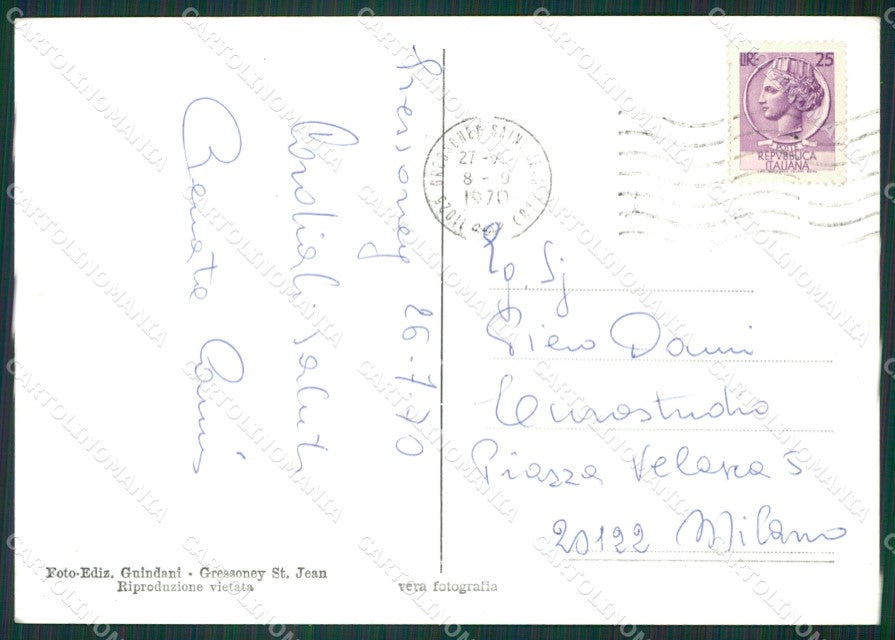 Gressoney 26-7-70
Cordiali saluti
Renato
LIRE 25
POSTE
REPVBBLICA
ITALIANA
GRESSONEY SAIN
27-
8-9
1970
11025
Eg. Sj
Piero
Piazza Velasca 5
20122 Milano
Foto-Ediz. Guindani - Gressoney St. Jean
Riproduzione vietata
vera fotografia
CARTOLINOMANIA